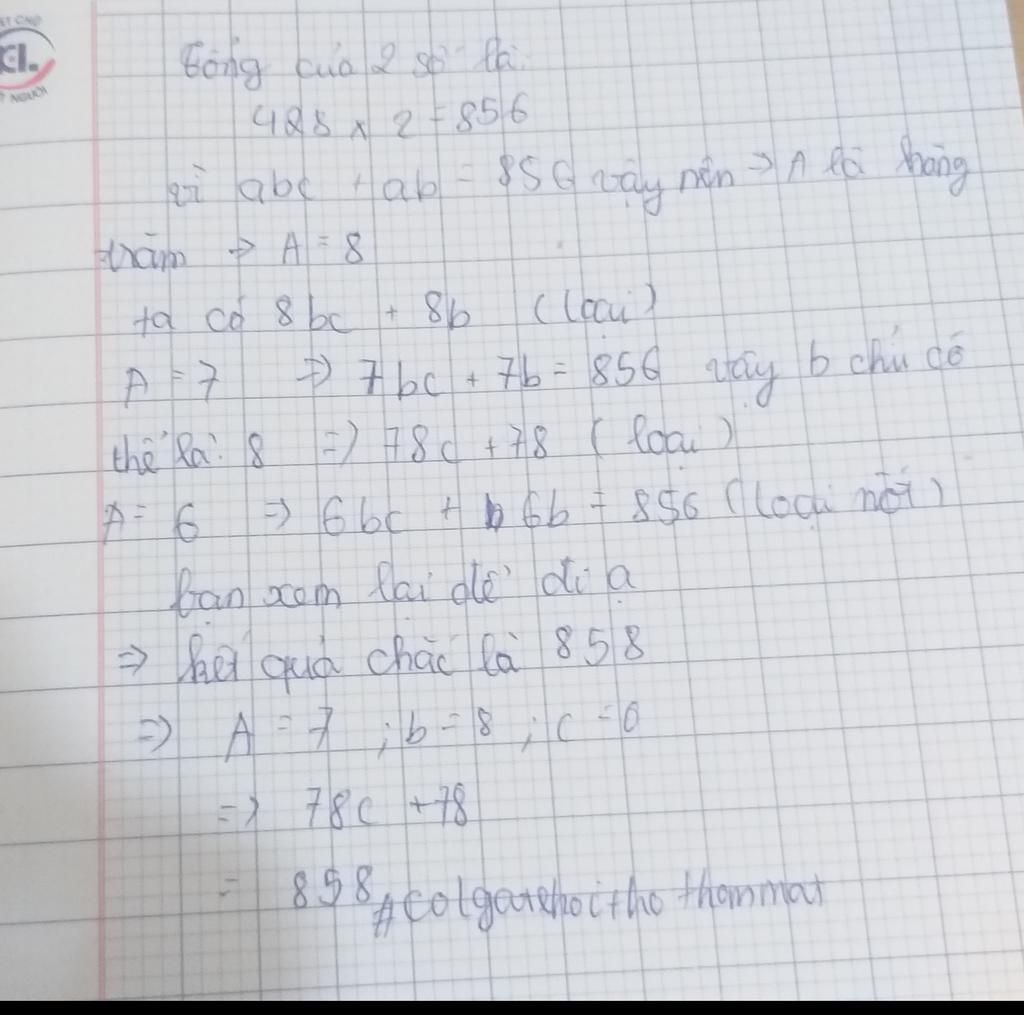 ẾT CHO
CI.
T NGƯỜI
Tổng của 2 số là:
428 x 2 = 856
vì abc + ab = 856 vậy nên => A là hàng
trăm => A = 8
ta có 8bc + 8b (loại)
A = 7 => 7bc + 7b = 856 vậy b chỉ có
thể là: 8 => 78c + 78 (loại)
A = 6 => 6bc + 6b = 856 (loại nốt)
bạn xem lại đề đi ạ
=> kết quả chắc là 858
=> A = 7 ; b = 8 ; c = 0
=> 78c + 78
= 858 #colgatehoithothommat